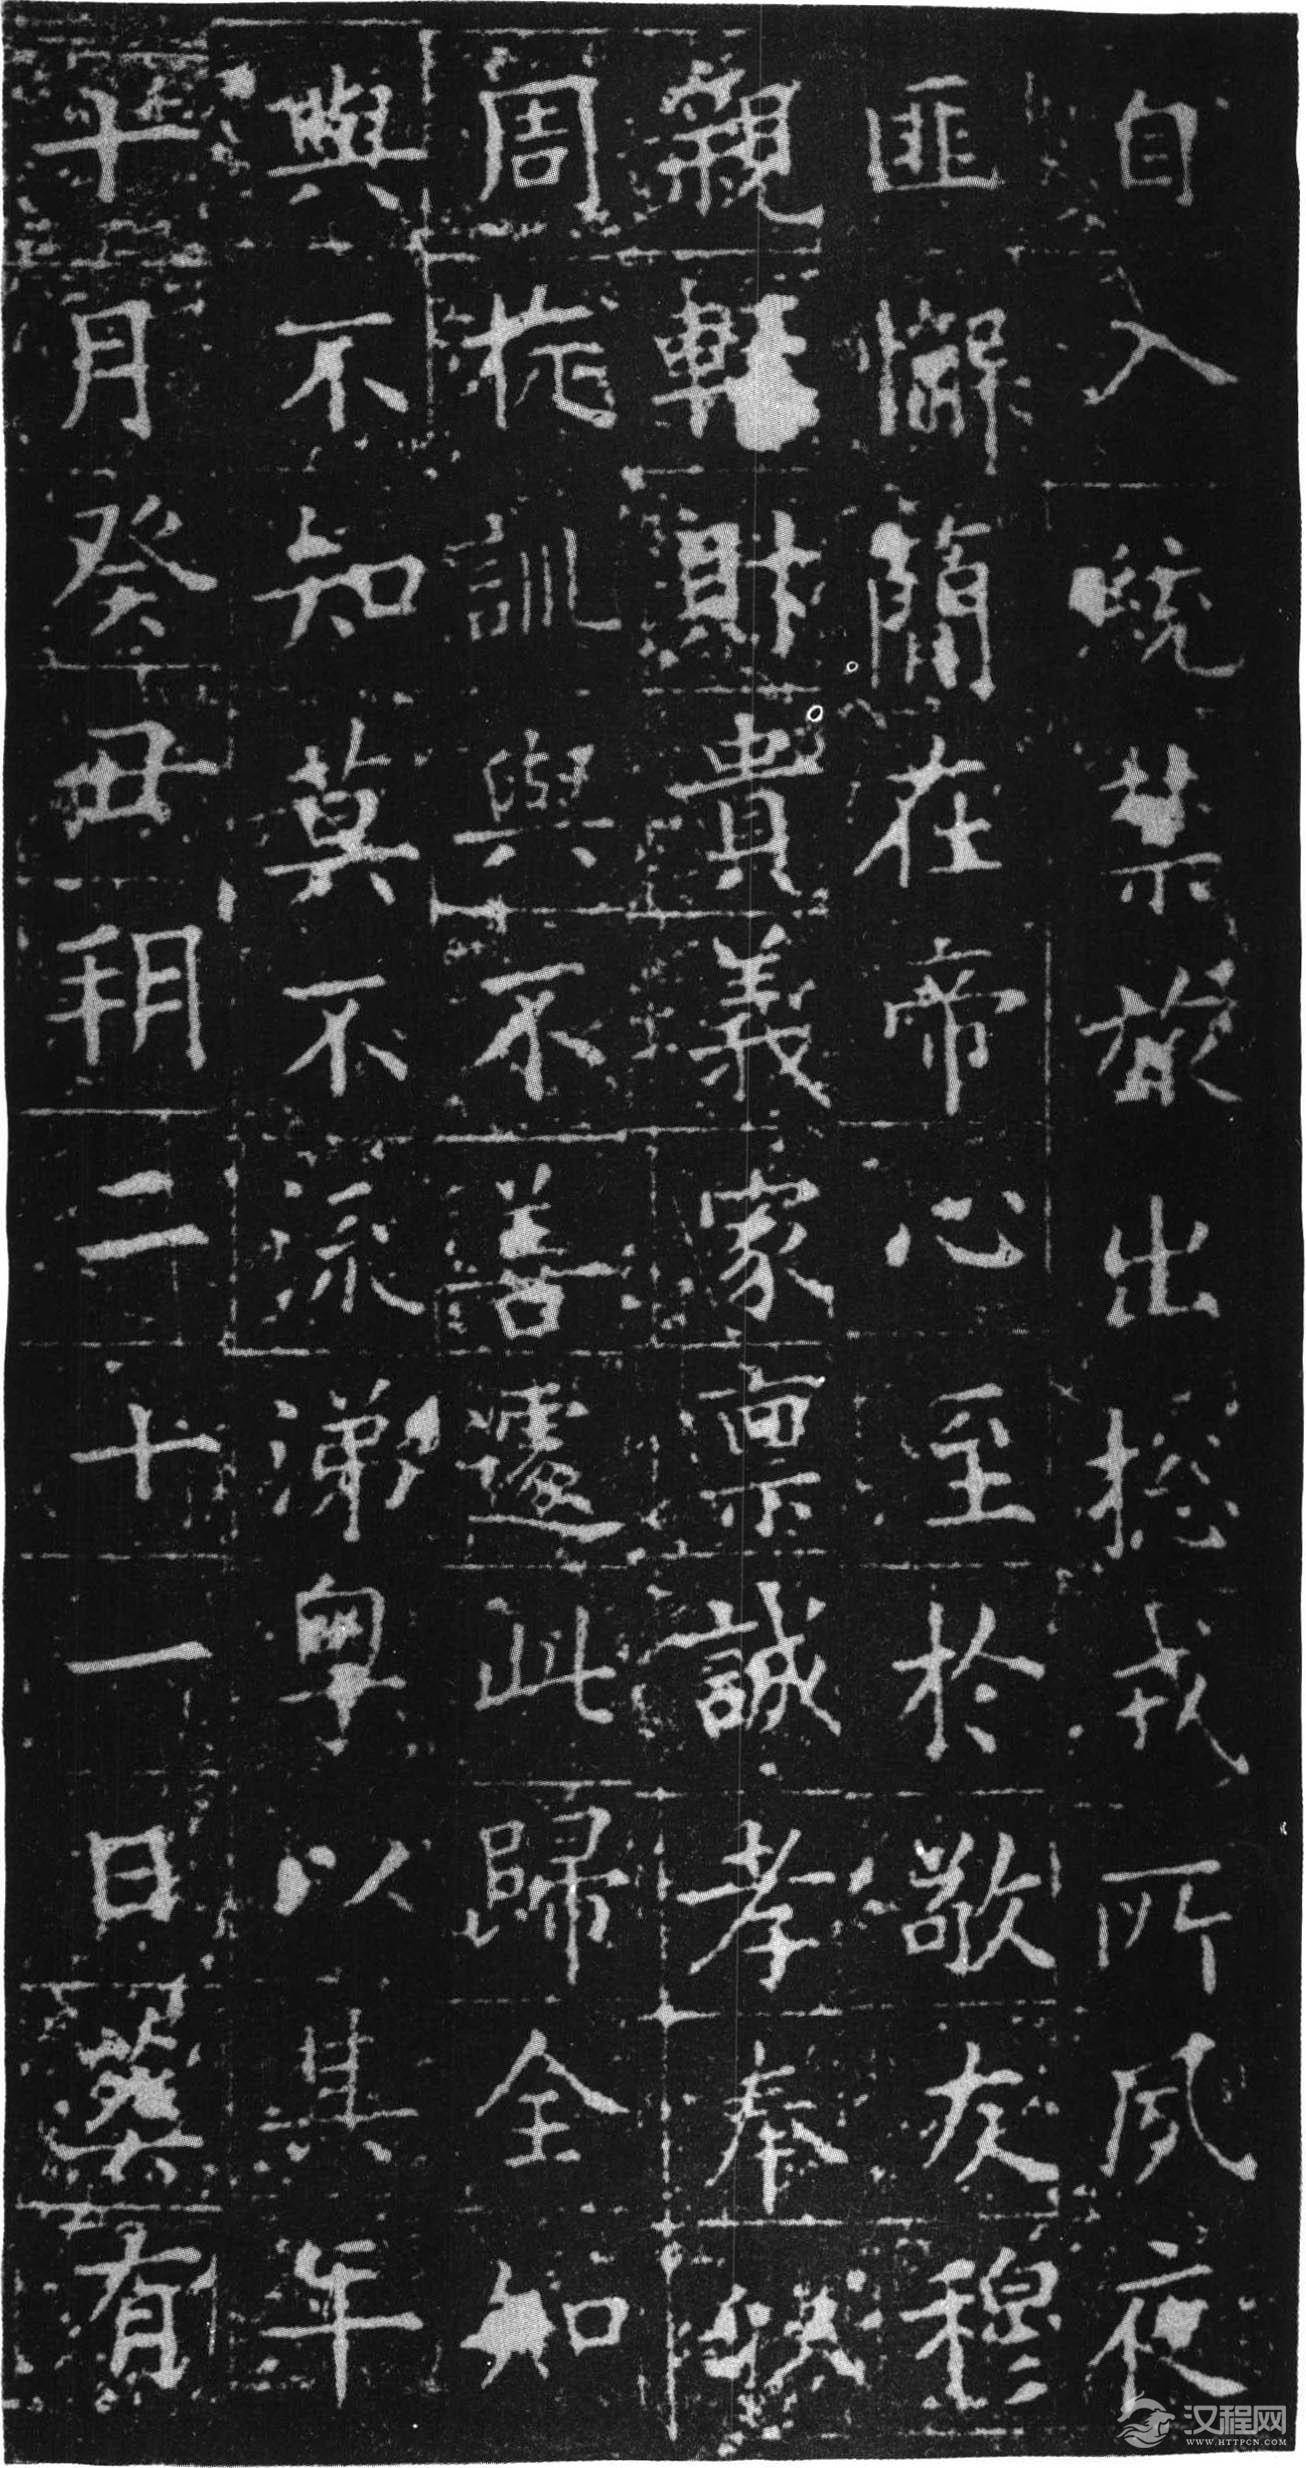 自入統禁旅出揔戎所夙夜
匪懈簡在帝心至於敬友穆
親輕財貴義家稟誠孝奉以
周旋訓與不善遽此歸全知
與不知莫不流涕粵以其年
十月癸丑朔二十一日葬有
汉程网
WWW.HTTPCN.COM